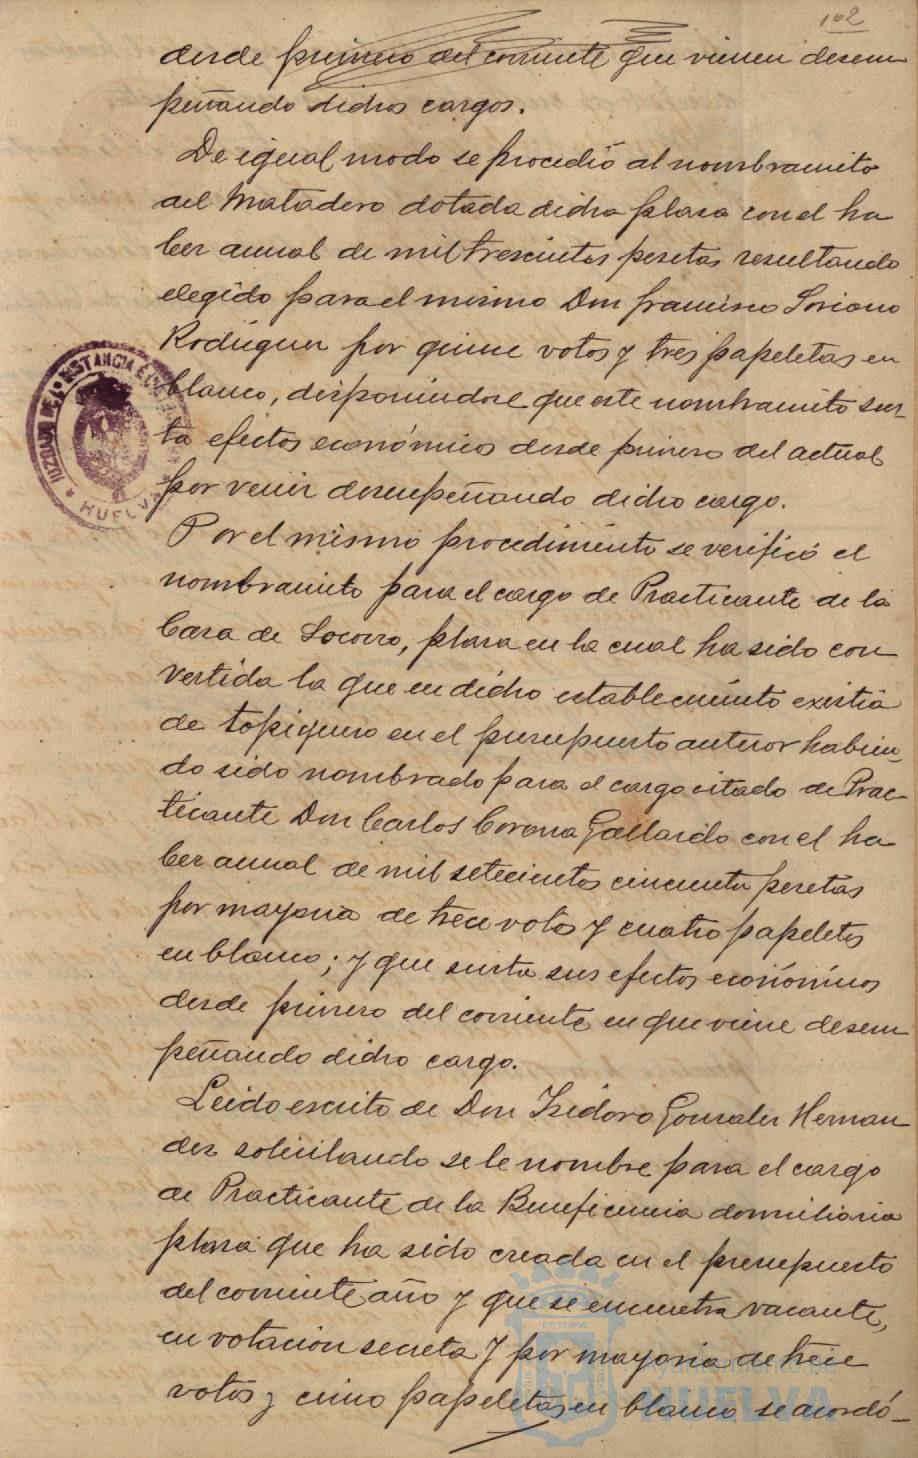 102
desde primero del corriente que vienen desem
peñando dichos cargos.
De igual modo se procedió al nombramito
del Matadero dotada dicha plaza con el ha
ber anual de mil trescientas pesetas resultando
elegido para el mismo Don Francisco Soriano
Rodriguez por quince votos y tres papeletas en
blanco, disponiendose que este nombramito sur-
ta efectos económicos desde primero del actual
por venir desempeñando dicho cargo.
Por el mismo procedimiento se verificó el
nombramito para el cargo de Practicante de la
Casa de Socorro, plaza en la cual ha sido con
vertida la que en dicho establecimiento existia
de topiquero en el presupuesto anterior habien-
do sido nombrado para el cargo citado de Prac-
ticante Don Carlos Corona Gallardo con el ha
ber anual de mil setecientos cincuenta pesetas
por mayoria de trece votos y cuatro papeletas
en blanco; y que surta sus efectos económicos
desde primero del corriente en que viene desem
peñando dicho cargo.
Leido escrito de Don Isidoro Gonzalez Hernan
dez solicitando se le nombre para el cargo
de Practicante de la Beneficencia domiciliaria
plaza que ha sido creada en el presupuesto
del corriente año y que se encuentra vacante,
en votacion secreta y por mayoria de trece
votos y cinco papeletas en blanco se acordó-
JUZGADO DE 1ª INSTANCIA E
HUELVA
Ayuntamiento de
HUELVA